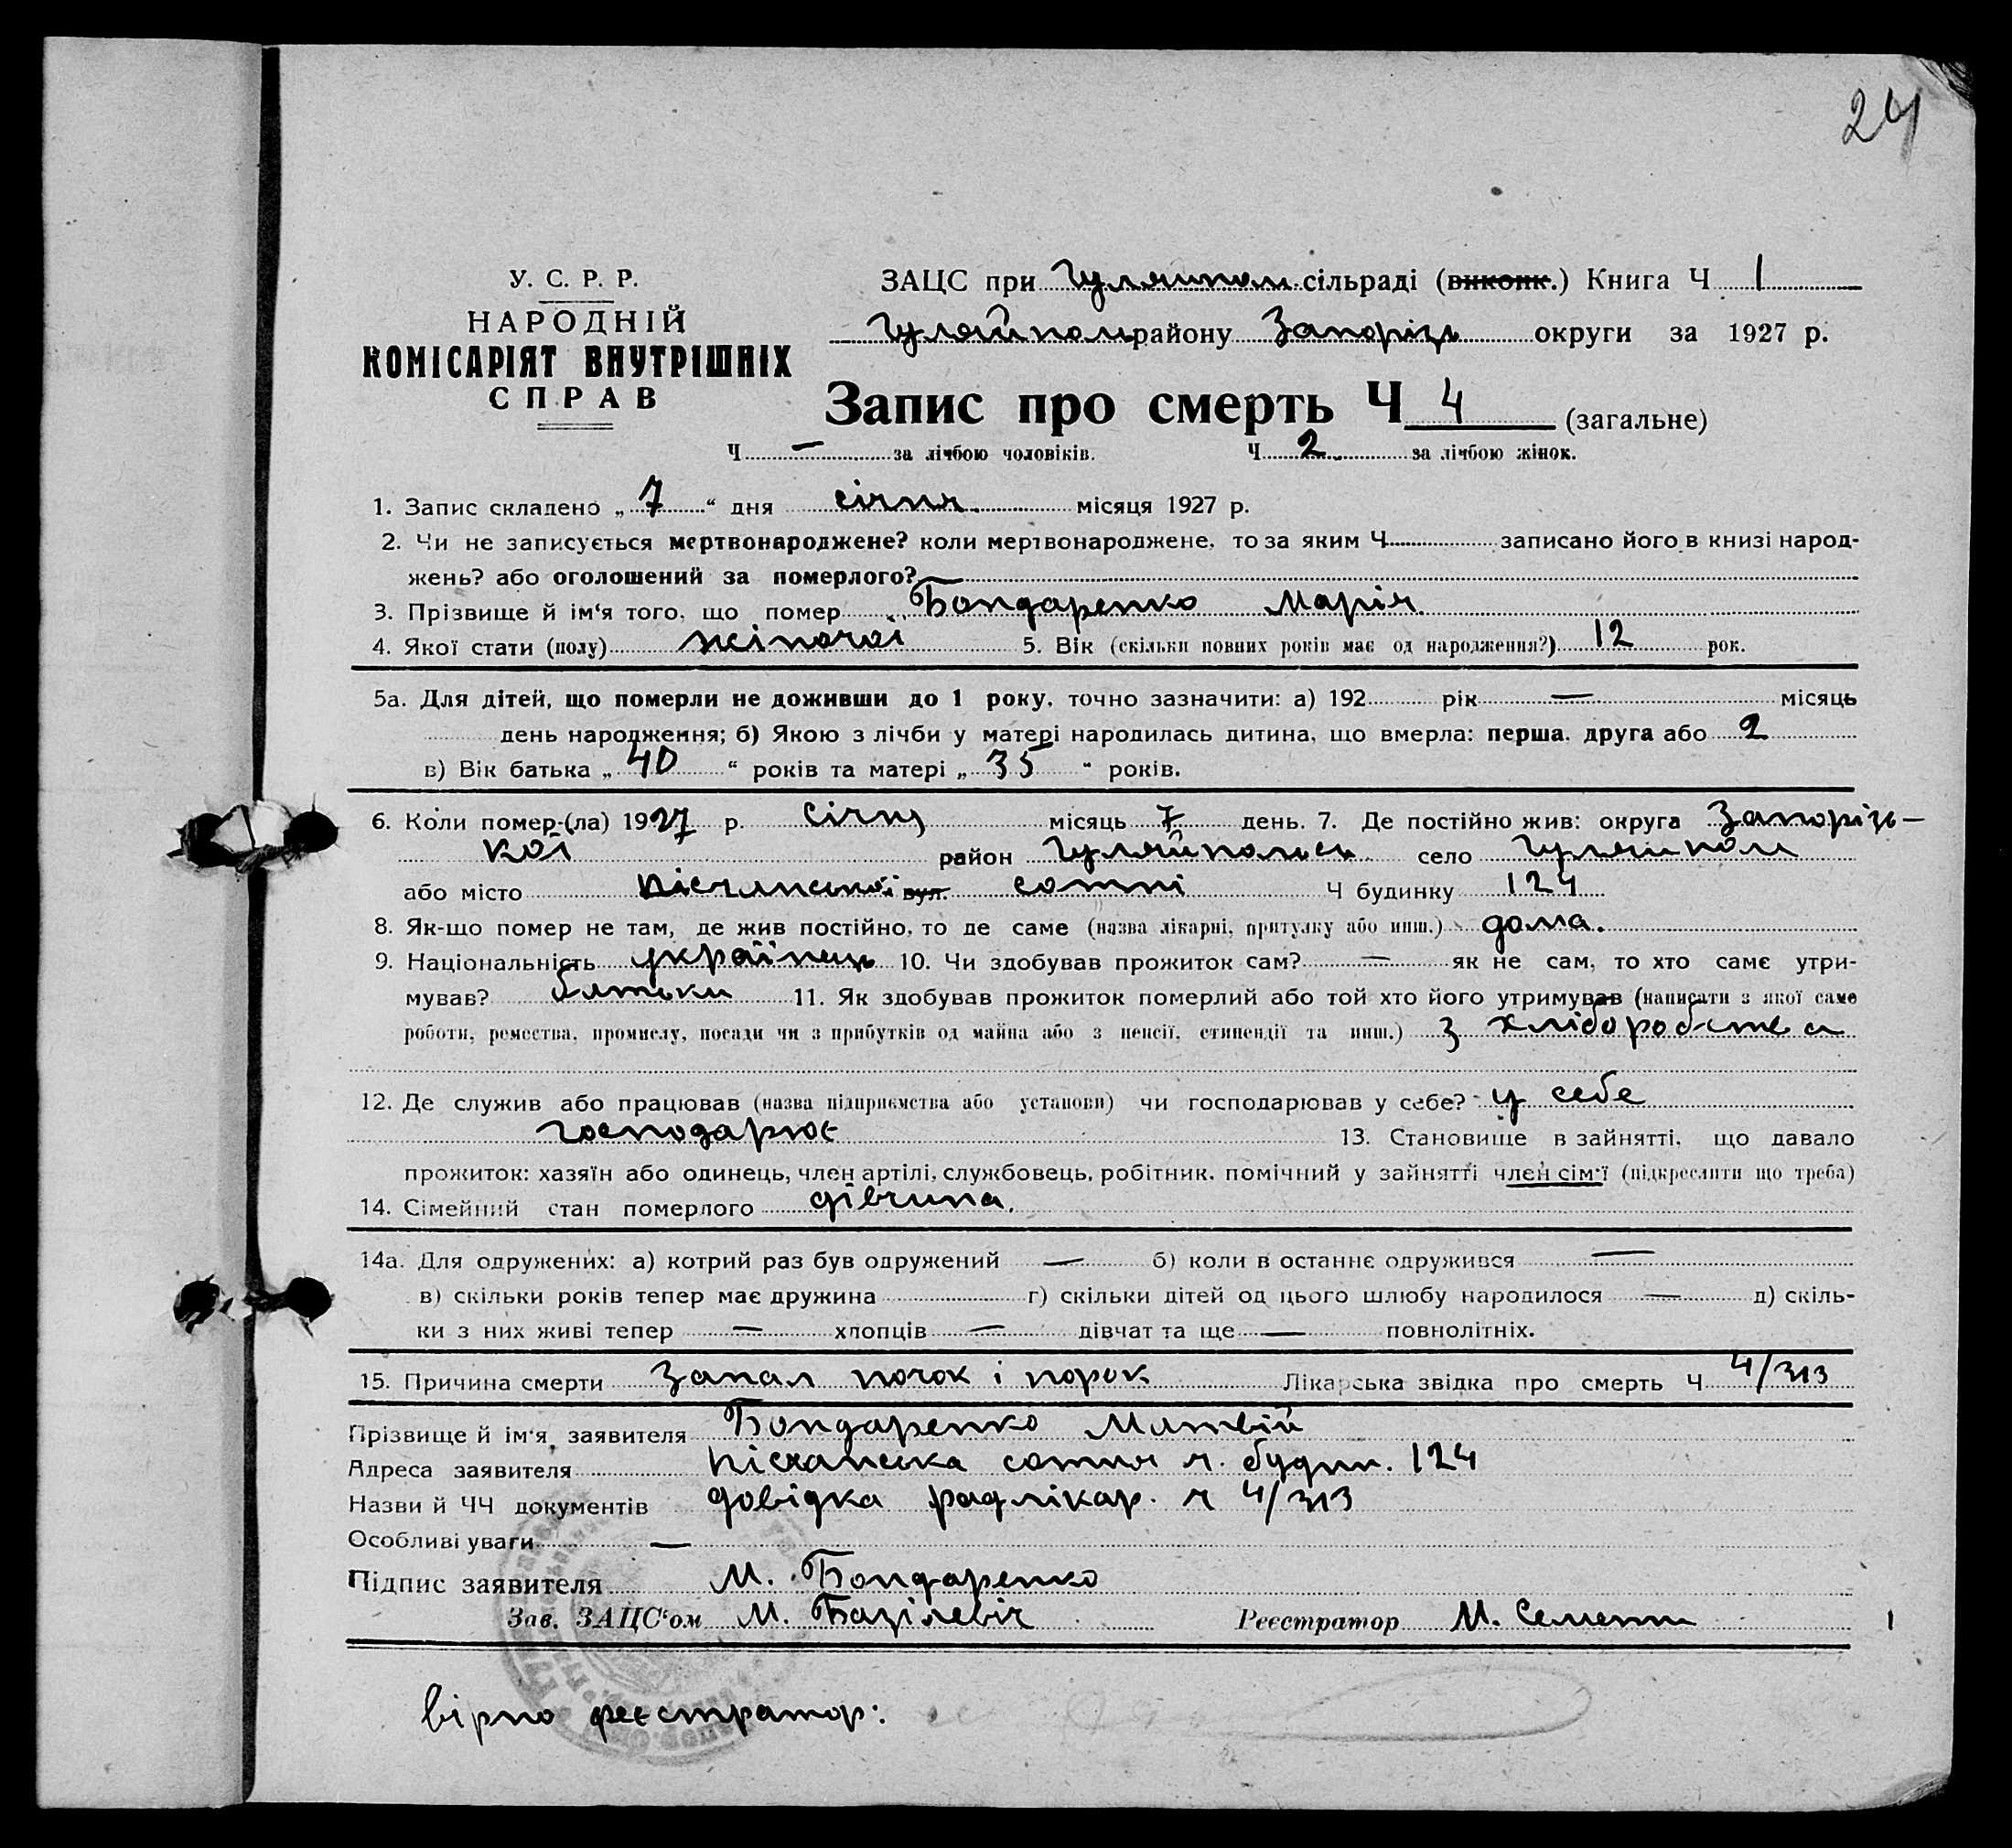 24
У. С. Р. Р.
НАРОДНІЙ
КОМІСАРІЯТ ВНУТРІШНІХ
СПРАВ
ЗАЦС при Гуляйпол. сільраді (виконк.) Книга Ч 1
Гуляйполь району Запорізь округи за 1927 р.
Запис про смерть Ч 4 (загальне)
Ч — за лічбою чоловіків. Ч 2 за лічбою жінок.
1. Запис складено „ 7 “ дня січня місяця 1927 р.
2. Чи не записується мертвонароджене? коли мертвонароджене, то за яким Ч записано його в книзі народ-
жень? або оголошений за померлого? —
3. Прізвище й ім‘я того, що помер Бондаренко Марія
4. Якої стати (полу) жіночої 5. Вік (скільки повних років має од народження?) 12 рок.
5а. Для дітей, що померли не доживши до 1 року, точно зазначити: а) 192 рік — місяць
день народження; б) Якою з лічби у матері народилась дитина, що вмерла: перша, друга або 2
в) Вік батька „ 40 “ років та матері „ 35 “ років.
6. Коли помер-(ла) 1927 р. січня місяць 7 день. 7. Де постійно жив: округа Запорізь-
кої район Гуляйпольсь село Гуляйполе
або місто Пісчанської вул. сотні Ч будинку 124
8. Як-що помер не там, де жив постійно, то де саме (назва лікарні, притулку або инш.) дома.
9. Національність українець 10. Чи здобував прожиток сам? — як не сам, то хто саме утри-
мував? батьки 11. Як здобував прожиток померлий або той хто його утримував (написати з якої саме
роботи, ремества, промислу, посади чи з прибутків од майна або з пенсії, стипендії та инш.) з хліборобства
12. Де служив або працював (назва підприємства або установи) чи господарював у себе? у себе
господарює 13. Становище в зайнятті, що давало
прожиток: хазяїн або одинець, член артілі, службовець, робітник, помічний у зайнятті член сім‘ї (підкреслити що треба)
14. Сімейний стан померлого дівчина.
14а. Для одружених: а) котрий раз був одружений — б) коли в останнє одружився —
в) скільки років тепер має дружина г) скільки дітей од цього шлюбу народилося — д) скіль-
ки з них живі тепер — хлопців — дівчат та ще — повнолітніх.
15. Причина смерти Запал почок і порок Лікарська звідка про смерть Ч 4/313
Прізвище й ім‘я заявителя Бондаренко Матвій
Адреса заявителя Пісчанська сотня ч. будин. 124
Назви й ЧЧ документів довідка радлікар. ч 4/313
Особливі уваги —
Підпис заявителя М. Бондаренко
Зав. ЗАЦС‘ом М. Базілевіч Реєстратор М. Семен
вірно реєстратор: